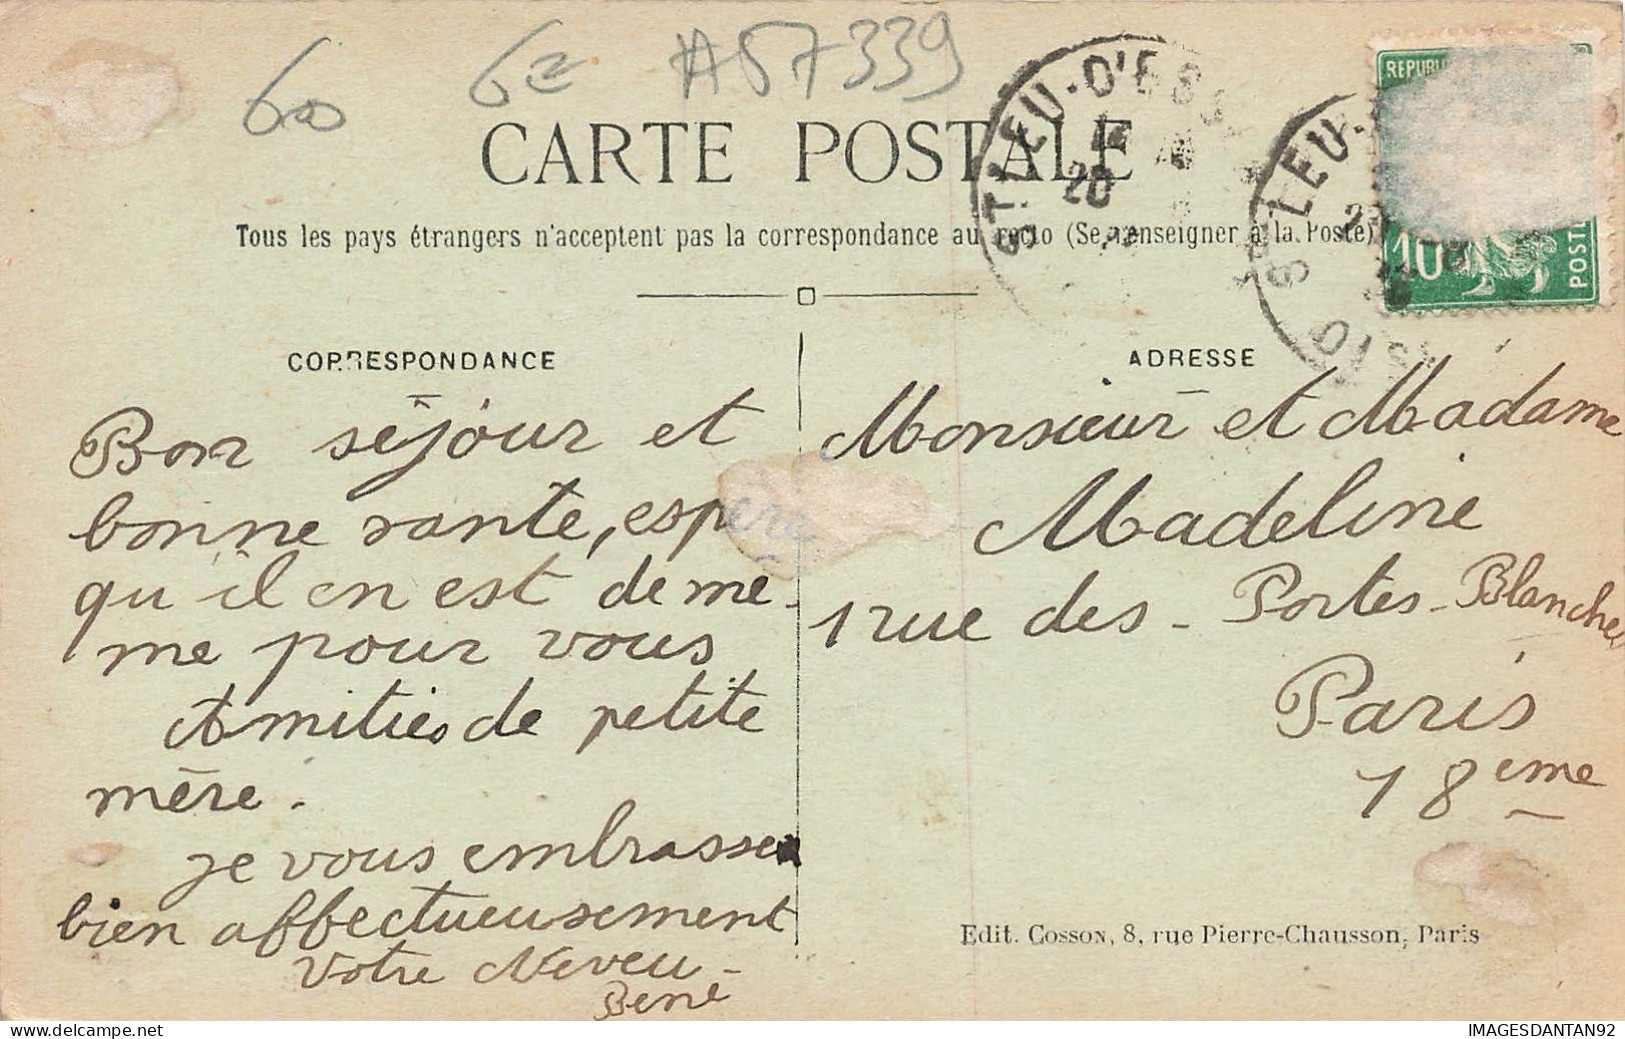 60 6e A57339
CARTE POSTALE
Tous les pays étrangers n'acceptent pas la correspondance au recto (Se renseigner à la Poste)
ST LEU-D'ESS
20
LEU
OIS
REPUBL
10
POSTE
CORRESPONDANCE
Bon séjour et
bonne sante, espère
qu'il en est de me-
me pour vous
Amitiés de petite
mère.
je vous embrasse
bien affectueusement
Votre Neveu -
René
ADRESSE
Monsieur et Madame
Madeline
1 rue des - Portes - Blanches
Paris
18eme
Edit. COSSON, 8, rue Pierre-Chausson, Paris
IMAGESDANTAN92